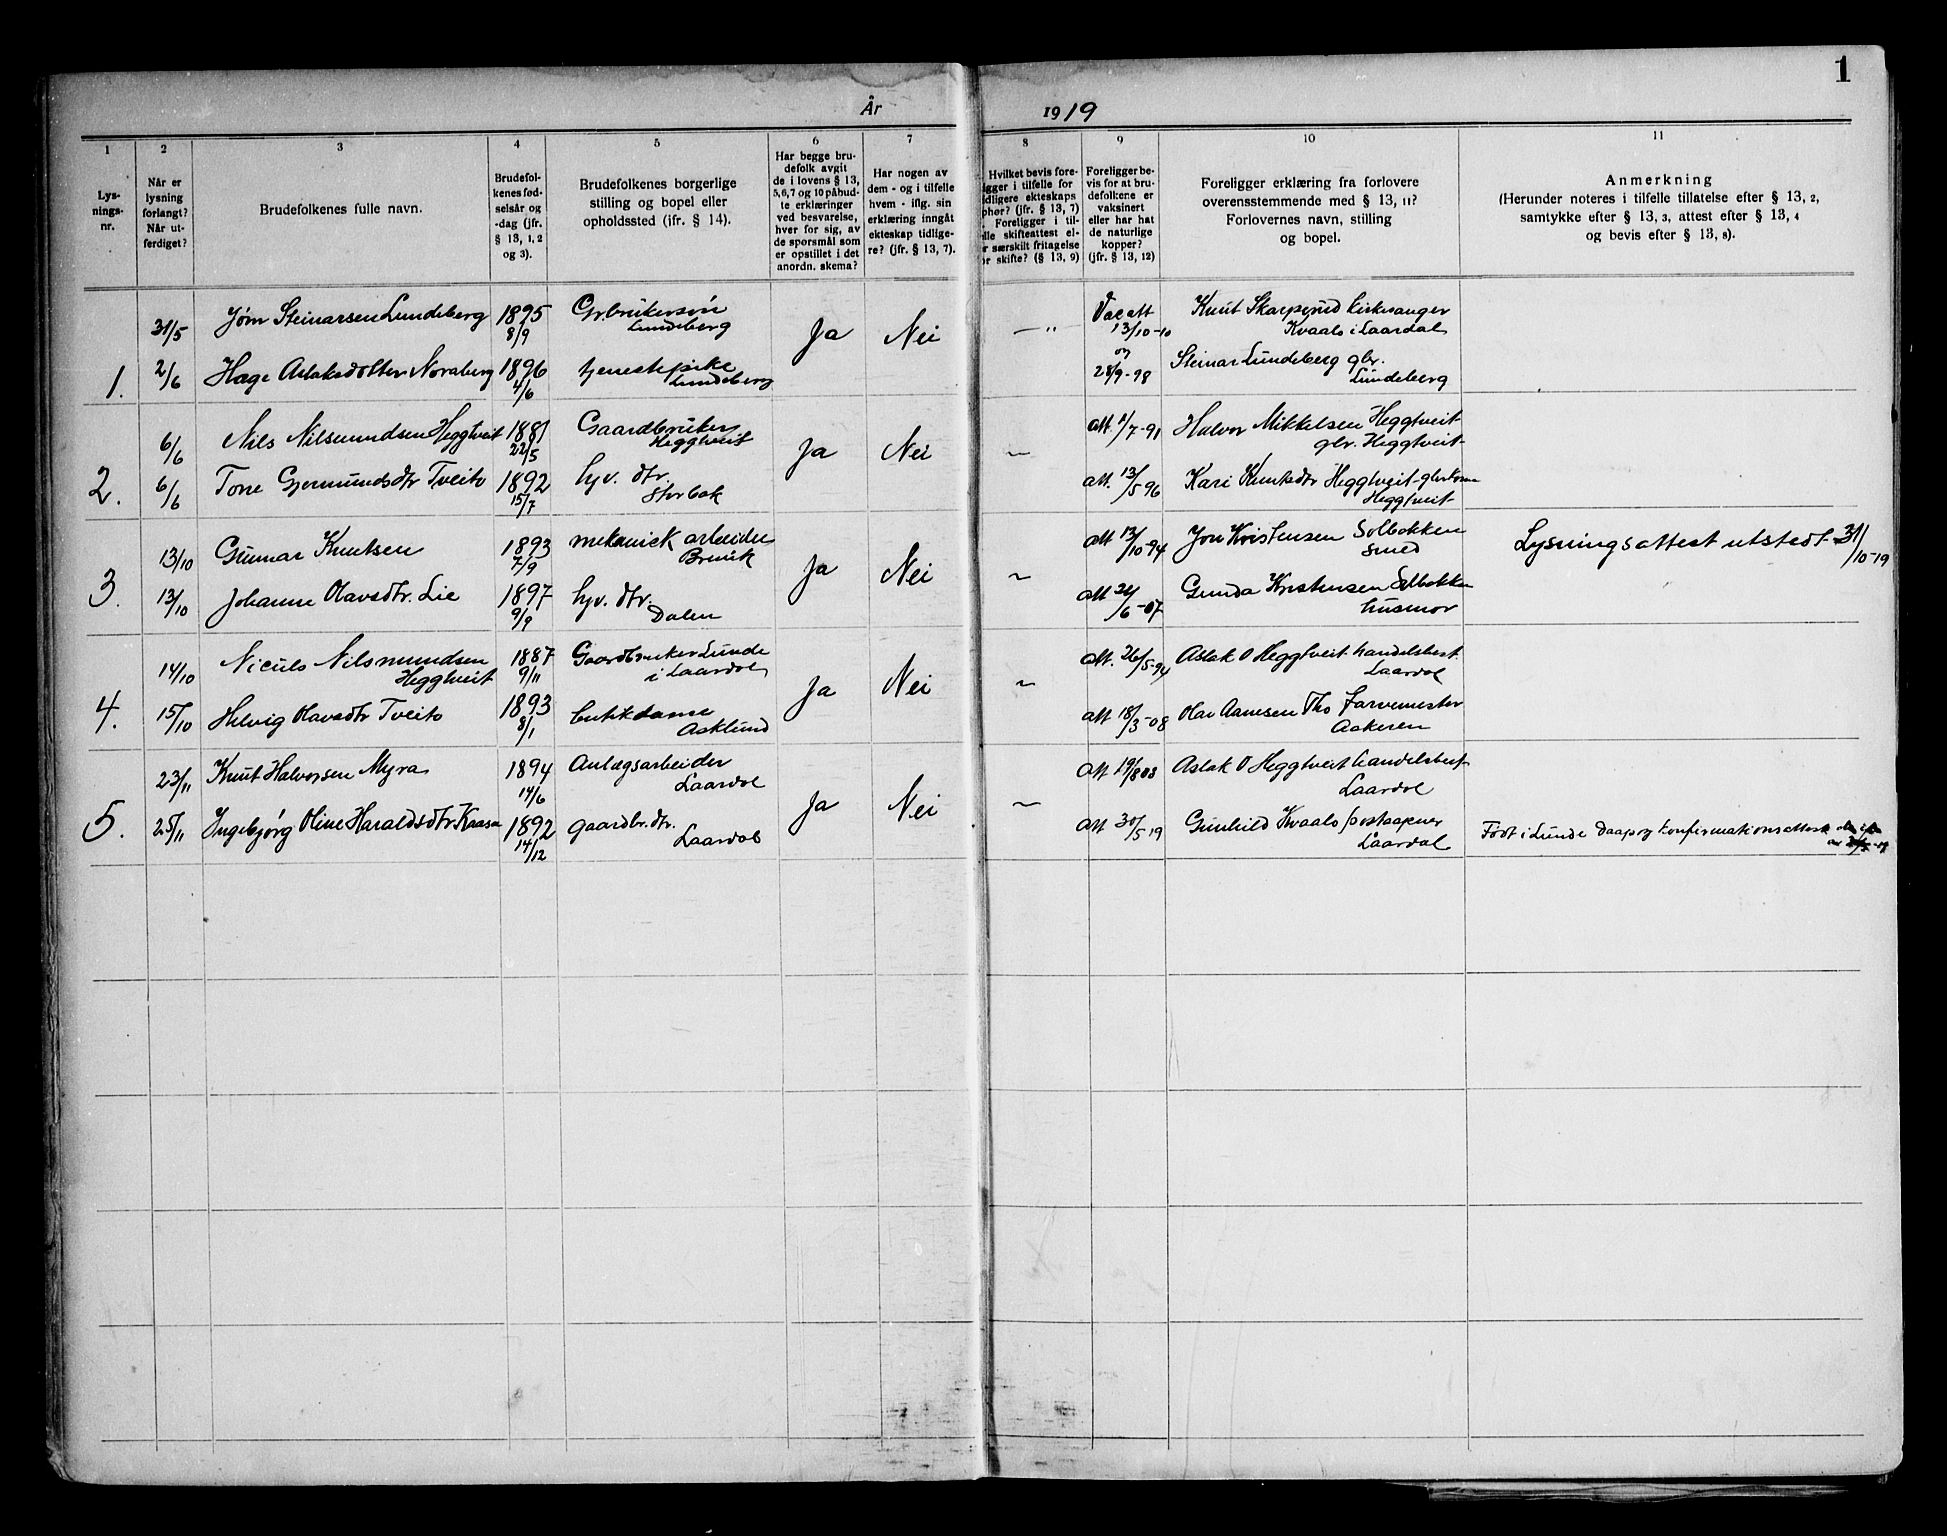 1
År 1919
1
2
3
4
5
6
7
8
9
10
11
Lys-
nings-
nr.
Når er
lysning
forlangt?
Når ut-
ferdiget?
Brudefolkenes fulle navn.
Brudefol-
kenes fød-
selsår og
-dag (jfr.
§ 13, 1, 2
og 3).
Brudefolkenes borgerlige
stilling og bopel eller
opholdssted (ifr. § 14).
Har begge bru-
defolk avgit
de i lovens § 13,
5,6,7 og 10 påbud-
te erklæringer
ved besvarelse,
hver for sig, av
de spørsmål som
er opstillet i det
anordn. skema?
Har nogen av
dem - og i tilfelle
hvem - iflg. sin
erklæring inngåt
ekteskap tidlige-
re? (jfr. § 13, 7).
Hvilket bevis fore-
ligger i tilfelle for
idligere ekteskaps
phør? (jfr. § 13, 7)
. Foreligger i til-
elle skifteattest el-
r særskilt fritagelse
or skifte? (§ 13, 9)
Foreligger be-
vis for at bru-
defolkene er
vaksinert
eller har hat
de naturlige
kopper?
(jfr. § 13, 12)
Foreligger erklæring fra forlovere
overensstemmende med § 13, 11?
Forlovernes navn, stilling
og bopel.
Anmerkning
(Herunder noteres i tilfelle tillatelse efter § 13, 2,
samtykke efter § 13, 3, attest efter § 13, 4
og bevis efter § 13, 8).
31/5 Jøm Steinarsen Lundeberg 1895 8/9 Gr.brukersøn Lundeberg Ja Nei — " Vac att 13/10-10 Knut Skarprud kirkesanger Kvaalo i Laardal
1. 2/6 Hæge Aslaksdotter Noraberg 1896 4/6 tjenestepike Lundeberg og 28/9-98 Steinar Lundeberg gbr. Lundeberg
6/6 Nils Nilsmundsen Heggtveit 1881 22/5 Gaardbruker Heggtveit Ja Nei — att. 1/7-91 Halvor Mikkelsen Heggtveit gbr. Heggtveit
2. 6/6 Tone Gjermundsdtr Tveito 1892 15/7 hjv. dtr. Storbak att. 13/5 96 Kari Knutsdtr Heggtveit Heggtveit
13/10 Gunnar Knutsen 1893 7/9 mekanisk arbeider Brevik Ja Nei ~ att 13/10-94 Jon Kristensen Solbakken smed Lysningsattest utstedt 31/10-19
3. 13/10 Johanne Olavsdtr. Lie 1897 9/9 hjv. dtr. Dalen att 24/6-07 Gunda Kristensen Solbakken husmor
14/10 Niculs Nilsmundsen Heggtveit 1887 9/11 Gaardbruker Lunde i Laardal Ja Nei ~ att. 26/5-94 Aslak O Heggtveit handelsbest. Laardal
4. 15/10 Helvig Olavsdtr Tveito 1893 8/1 butikdame Asklund att 18/3-08 Olav Aanesen Tho farvemester Aakeren
23/11 Knut Halvorsen Myra 1894 14/6 Anlægsarbeider Laardal Ja Nei ~ att 19/8 03 Aslak O Heggtveit handelsbest. Laardal
5. 25/11 Ingebjørg Oline Haraldsdtr Kaasa 1892 14/12 gaardbr. dtr. Laardal att 30/5 19 Gunhild Kvaalo postaapner Laardal Født i Lunde Daap og konfirmationsattest